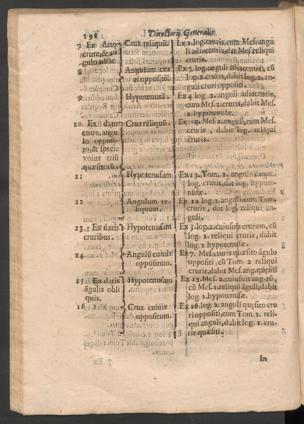 198 Directorij Generalis
7 Ex dato Crus reliquū Ex 2. log. cruris, cum Mes. angu
crure, & an li adiacentis, dat Mes. reliqui
gulo adiac cruris.
8 Angulum Ex 3. log. anguli adiacentis, cū
oppositū. log. 2. cruris, dabit log. 2. an-
guli cruri oppositi.
9 Hypotenusam Ex 4. log. 2. anguli adiacentis,
cum Mes. 2. cruris, dabit Mes.
2. hypotenusæ.
10. Ex dato Crus reliquū
crure, angu cruris, dabit log. reliqui
lo opposi- cruris.
to, & specie
unius trium
quæsitorū.
11 Hypotenusam Ex 13. Tom. 2. anguli, cum
log. cruris, dat log. hypote-
nusæ.
12 Angulum re- Ex 12. log. 2. anguli, cum Tom.
liquum. cruris, dat log. reliqui an-
guli.
13. Ex datis Hypotenusam Ex 3. log. 2. cuiusuis crurum, cū
cruribus. log. 2. reliqui cruris, dabit
log. 2. hypotenusæ.
14. Angulū cuiuis Ex 7. Mes. cruris quæsito āgulo
oppositum. oppositi, cū Tom. 2 reliqui
cruris, dabit Mes. ang. quæsiti
15. Ex datis Hypotenusam Ex 15. Mes. 2. cuiusuis ang-ri,
āgulis obli cū Mes. 2. reliqui āguli, dabit
quis. log. 2. hypotenusæ.
16. Crus cuiuis Ex 16. log. 2. anguli quæsito cru
oppositum. ri oppositi, cum Tom. 2. reli-
qui anguli, dabit log. 2. cru-
ris quæsiti.
In